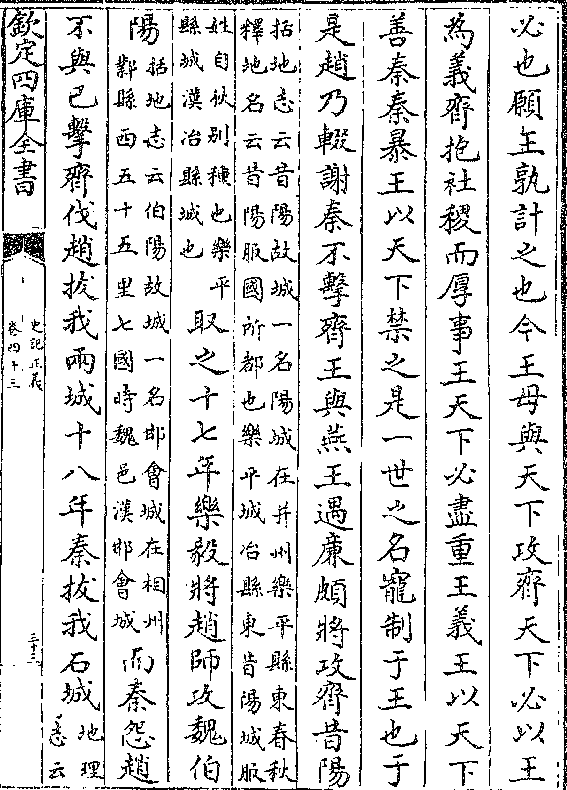 必也願王孰計之也今王毋與天下攻齊天下必以王
為義齊抱社稷而厚事王天下必盡重王義王以天下
善秦秦暴王以天下禁之是一世之名寵制于王也于
是趙乃輟謝秦不擊齊王與燕王遇廉頗將攻齊昔陽
括地志云昔陽故城一名陽城在并州樂平縣東春秋
釋地名云昔陽服國所都也樂平城冶縣東昔陽城服
姓自狄別種也樂平
縣城漢冶縣城也
取之十七年樂毅將趙師攻魏伯
陽
括地志云伯陽故城一名邯會城在相州
鄴縣西五十五里七國時魏邑漢邯會城
而秦怨趙
不與已擊齊伐趙拔我兩城十八年秦拔我石城
地理
志云
欽定四庫全書
史記正義
卷四十三
三十三